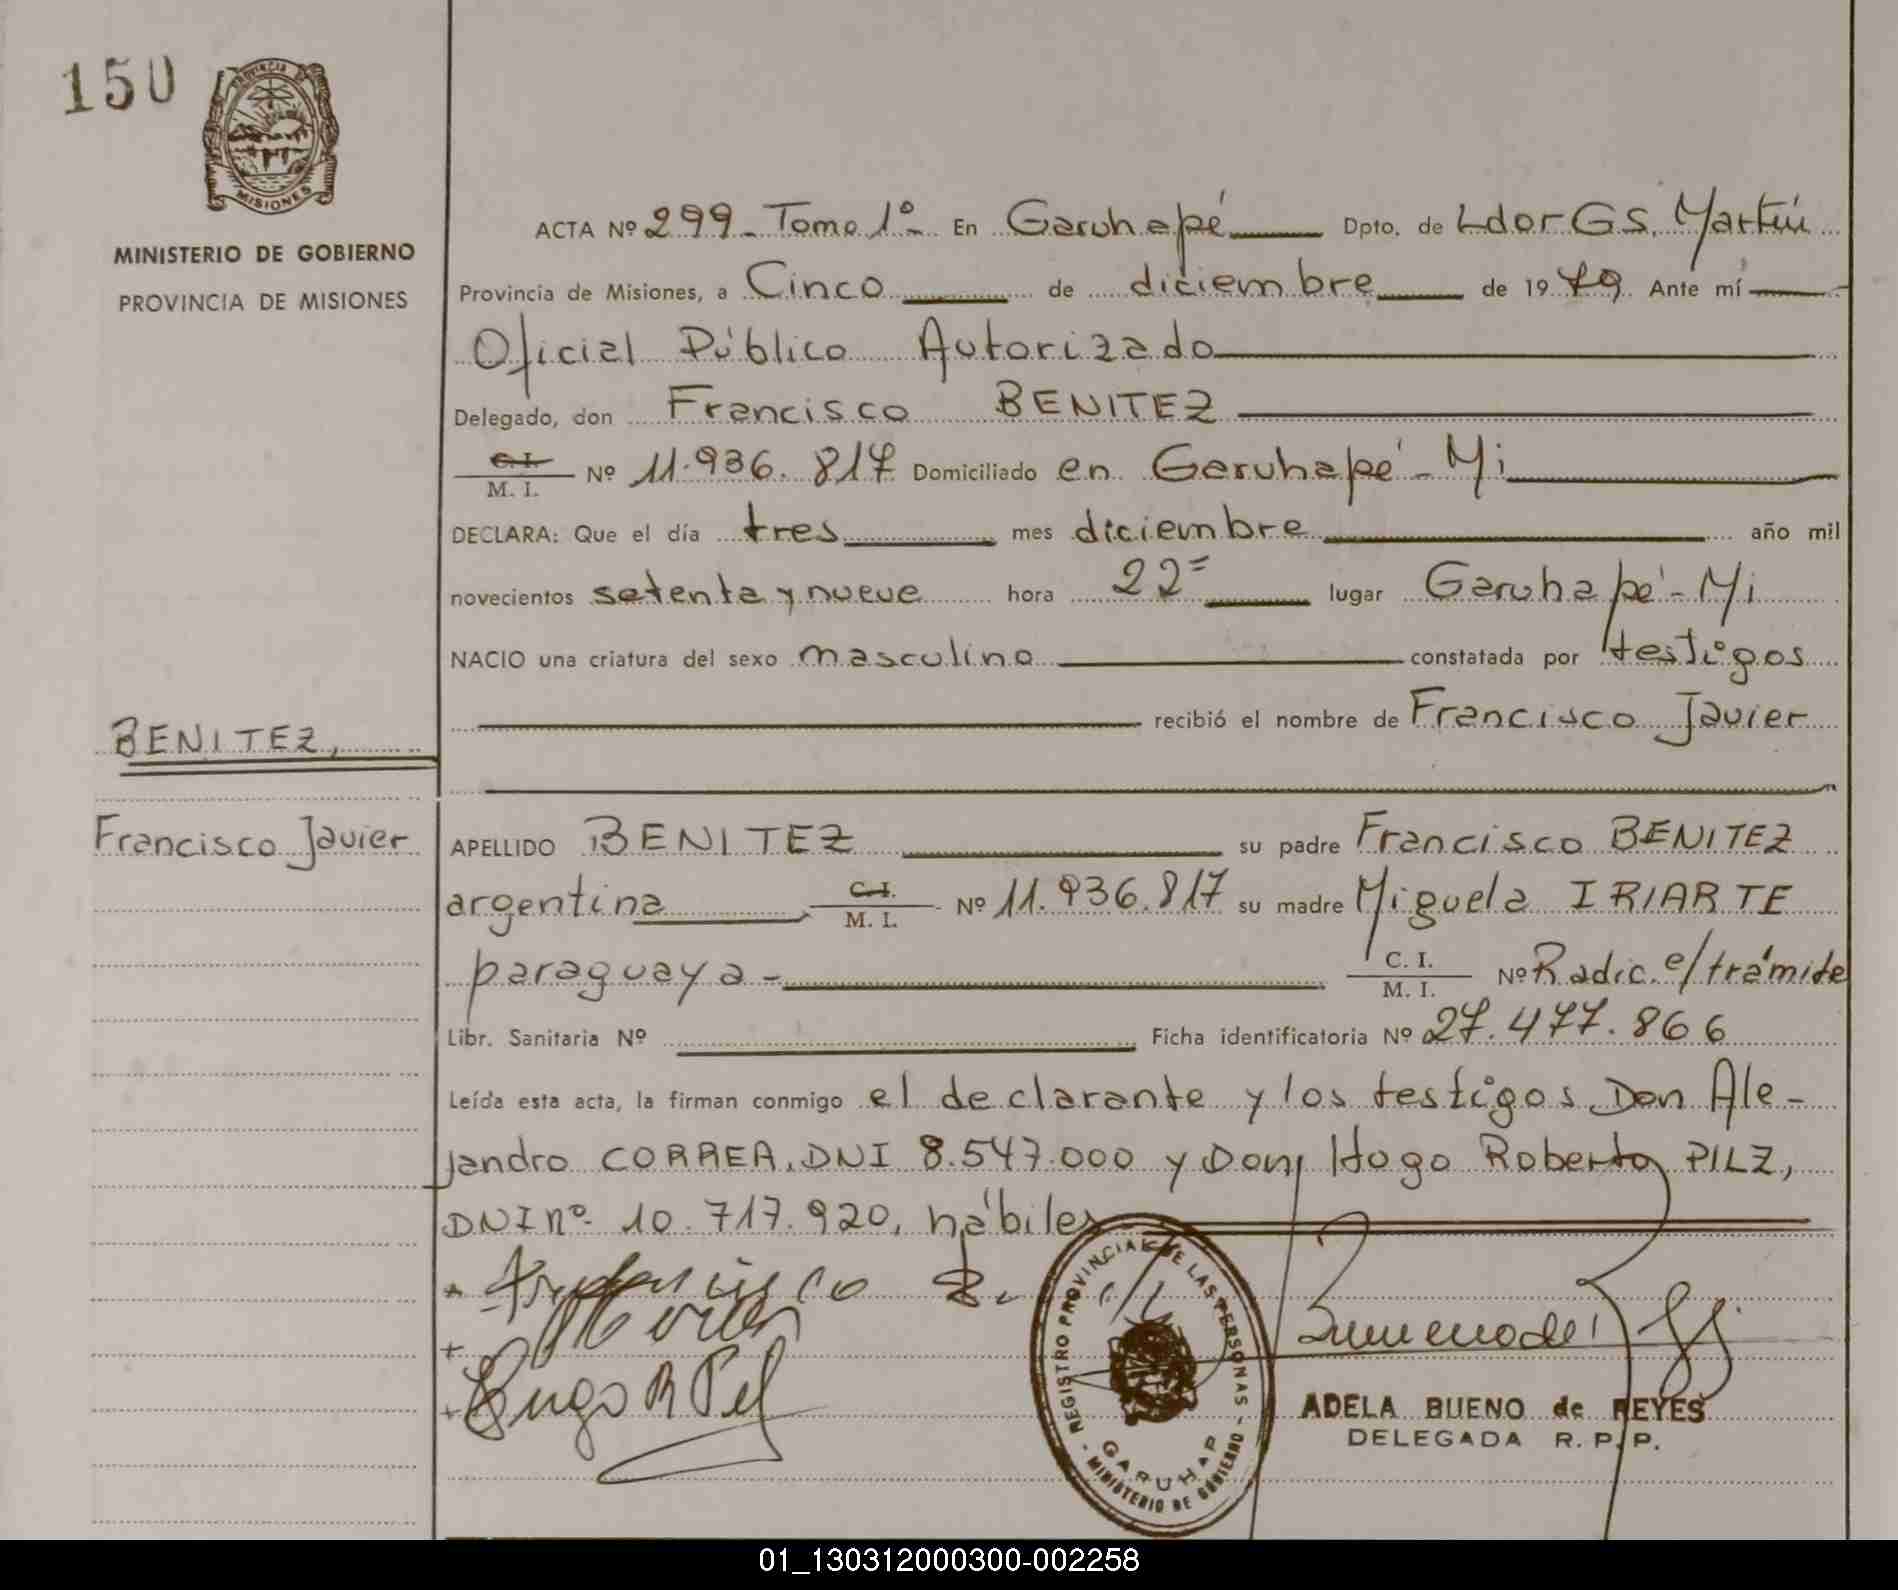 150
PROVINCIA DE
MISIONES
MINISTERIO DE GOBIERNO
PROVINCIA DE MISIONES
ACTA Nº 299 - Tomo 1º - En Garuhapé Dpto. de Ldor G S. Martín
Provincia de Misiones, a Cinco de diciembre de 19 79 Ante mí
Oficial Público Autorizado
Delegado, don Francisco BENITEZ
C. I. / M. I. Nº 11.936.817 Domiciliado en Garuhapé - Mi
DECLARA: Que el día tres mes diciembre año mil
novecientos setenta y nueve hora 22= lugar Garuhapé - Mi
NACIO una criatura del sexo masculino constatada por testigos
recibió el nombre de Francisco Javier
BENITEZ,
Francisco Javier
APELLIDO BENITEZ su padre Francisco BENITEZ
argentina C. I. / M. I. Nº 11.936.817 su madre Miguela IRIARTE
paraguaya - C. I. / M. I. Nº Radic. e/trámite
Libr. Sanitaria Nº Ficha identificatoria Nº 27.477.866
Leída esta acta, la firman conmigo el declarante y los testigos Don Ale-
jandro CORREA, DNI 8.547.000 y Don Hugo Roberto PILZ,
DNI nº 10.717.920, hábiles
Francisco B.
Hugo R
REGISTRO PROVINCIAL DE LAS PERSONAS
GARUHAP
- MINISTERIO DE GOBIERNO -
ADELA BUENO de REYES
DELEGADA R. P. P.
01_130312000300-002258